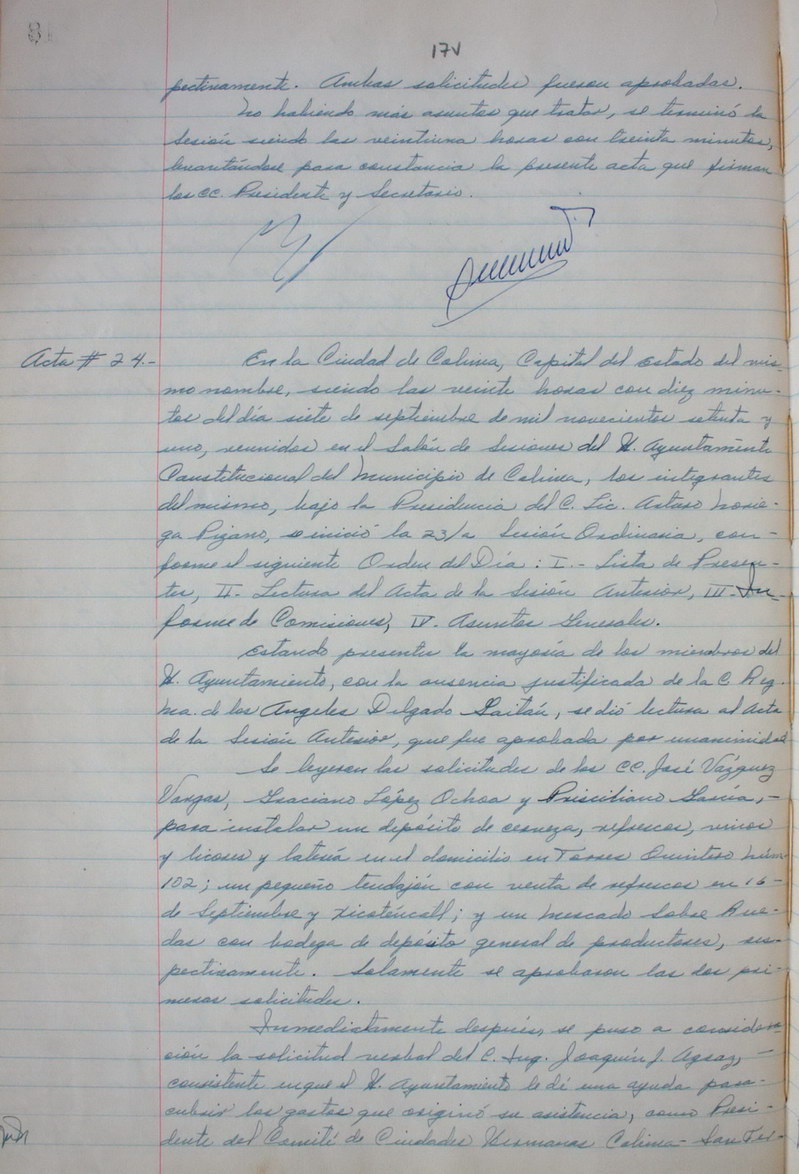 18
17V
pectivamente. Ambas solicitudes fueron aprobadas.
No habiendo más asuntos que tratar, se terminó la
Sesión siendo las veintiuna horas con treinta minutos,
levantándose para constancia la presente acta que firman
los CC. Presidente y Secretario.
Acta # 24.- En la Ciudad de Colima, Capital del Estado del mis-
mo nombre, siendo las veinte horas con diez minu-
tos del día siete de septiembre de mil novecientos setenta y
uno, reunidos en el Salón de Sesiones del H. Ayuntamiento
Constitucional del Municipio de Colima, los integrantes
del mismo, bajo la Presidencia del C. Lic. Arturo Norie-
ga Pizano, se inició la 23/a Sesión Ordinaria, con-
forme el siguiente Orden del Día: I.- Lista de Presen-
tes, II.- Lectura del Acta de la Sesión Anterior, III.- In-
forme de Comisiones, IV. Asuntos Generales.
Estando presentes la mayoría de los miembros del
H. Ayuntamiento, con la ausencia justificada de la C. Reg.
Ma. de los Angeles Delgado Gaitán, se dió lectura al Acta
de la Sesión Anterior, que fue aprobada por unanimidad
Se leyeron las solicitudes de los CC. José Vázquez
Vargas, Graciano López Ochoa y Prisciliano García,-
para instalar un depósito de cerveza, refrescos, vinos
y licores y latería en el domicilio en Torres Quintero Núm.
102; un pequeño tendajón con venta de refrescos en 16-
de Septiembre y Xicotencatl; y un Mercado Sobre Rue-
das con bodega de depósito general de productores, res-
pectivamente. Solamente se aprobaron las dos pri-
meras solicitudes.
Inmediatamente después, se puso a considera-
ción la solicitud verbal del C. Ing. Joaquín J. Agraz,-
consistente en que el H. Ayuntamiento le dé una ayuda para-
cubrir los gastos que originó su asistencia, como Presi-
dente del Comité de Ciudades Hermanas Colima- San Fer-